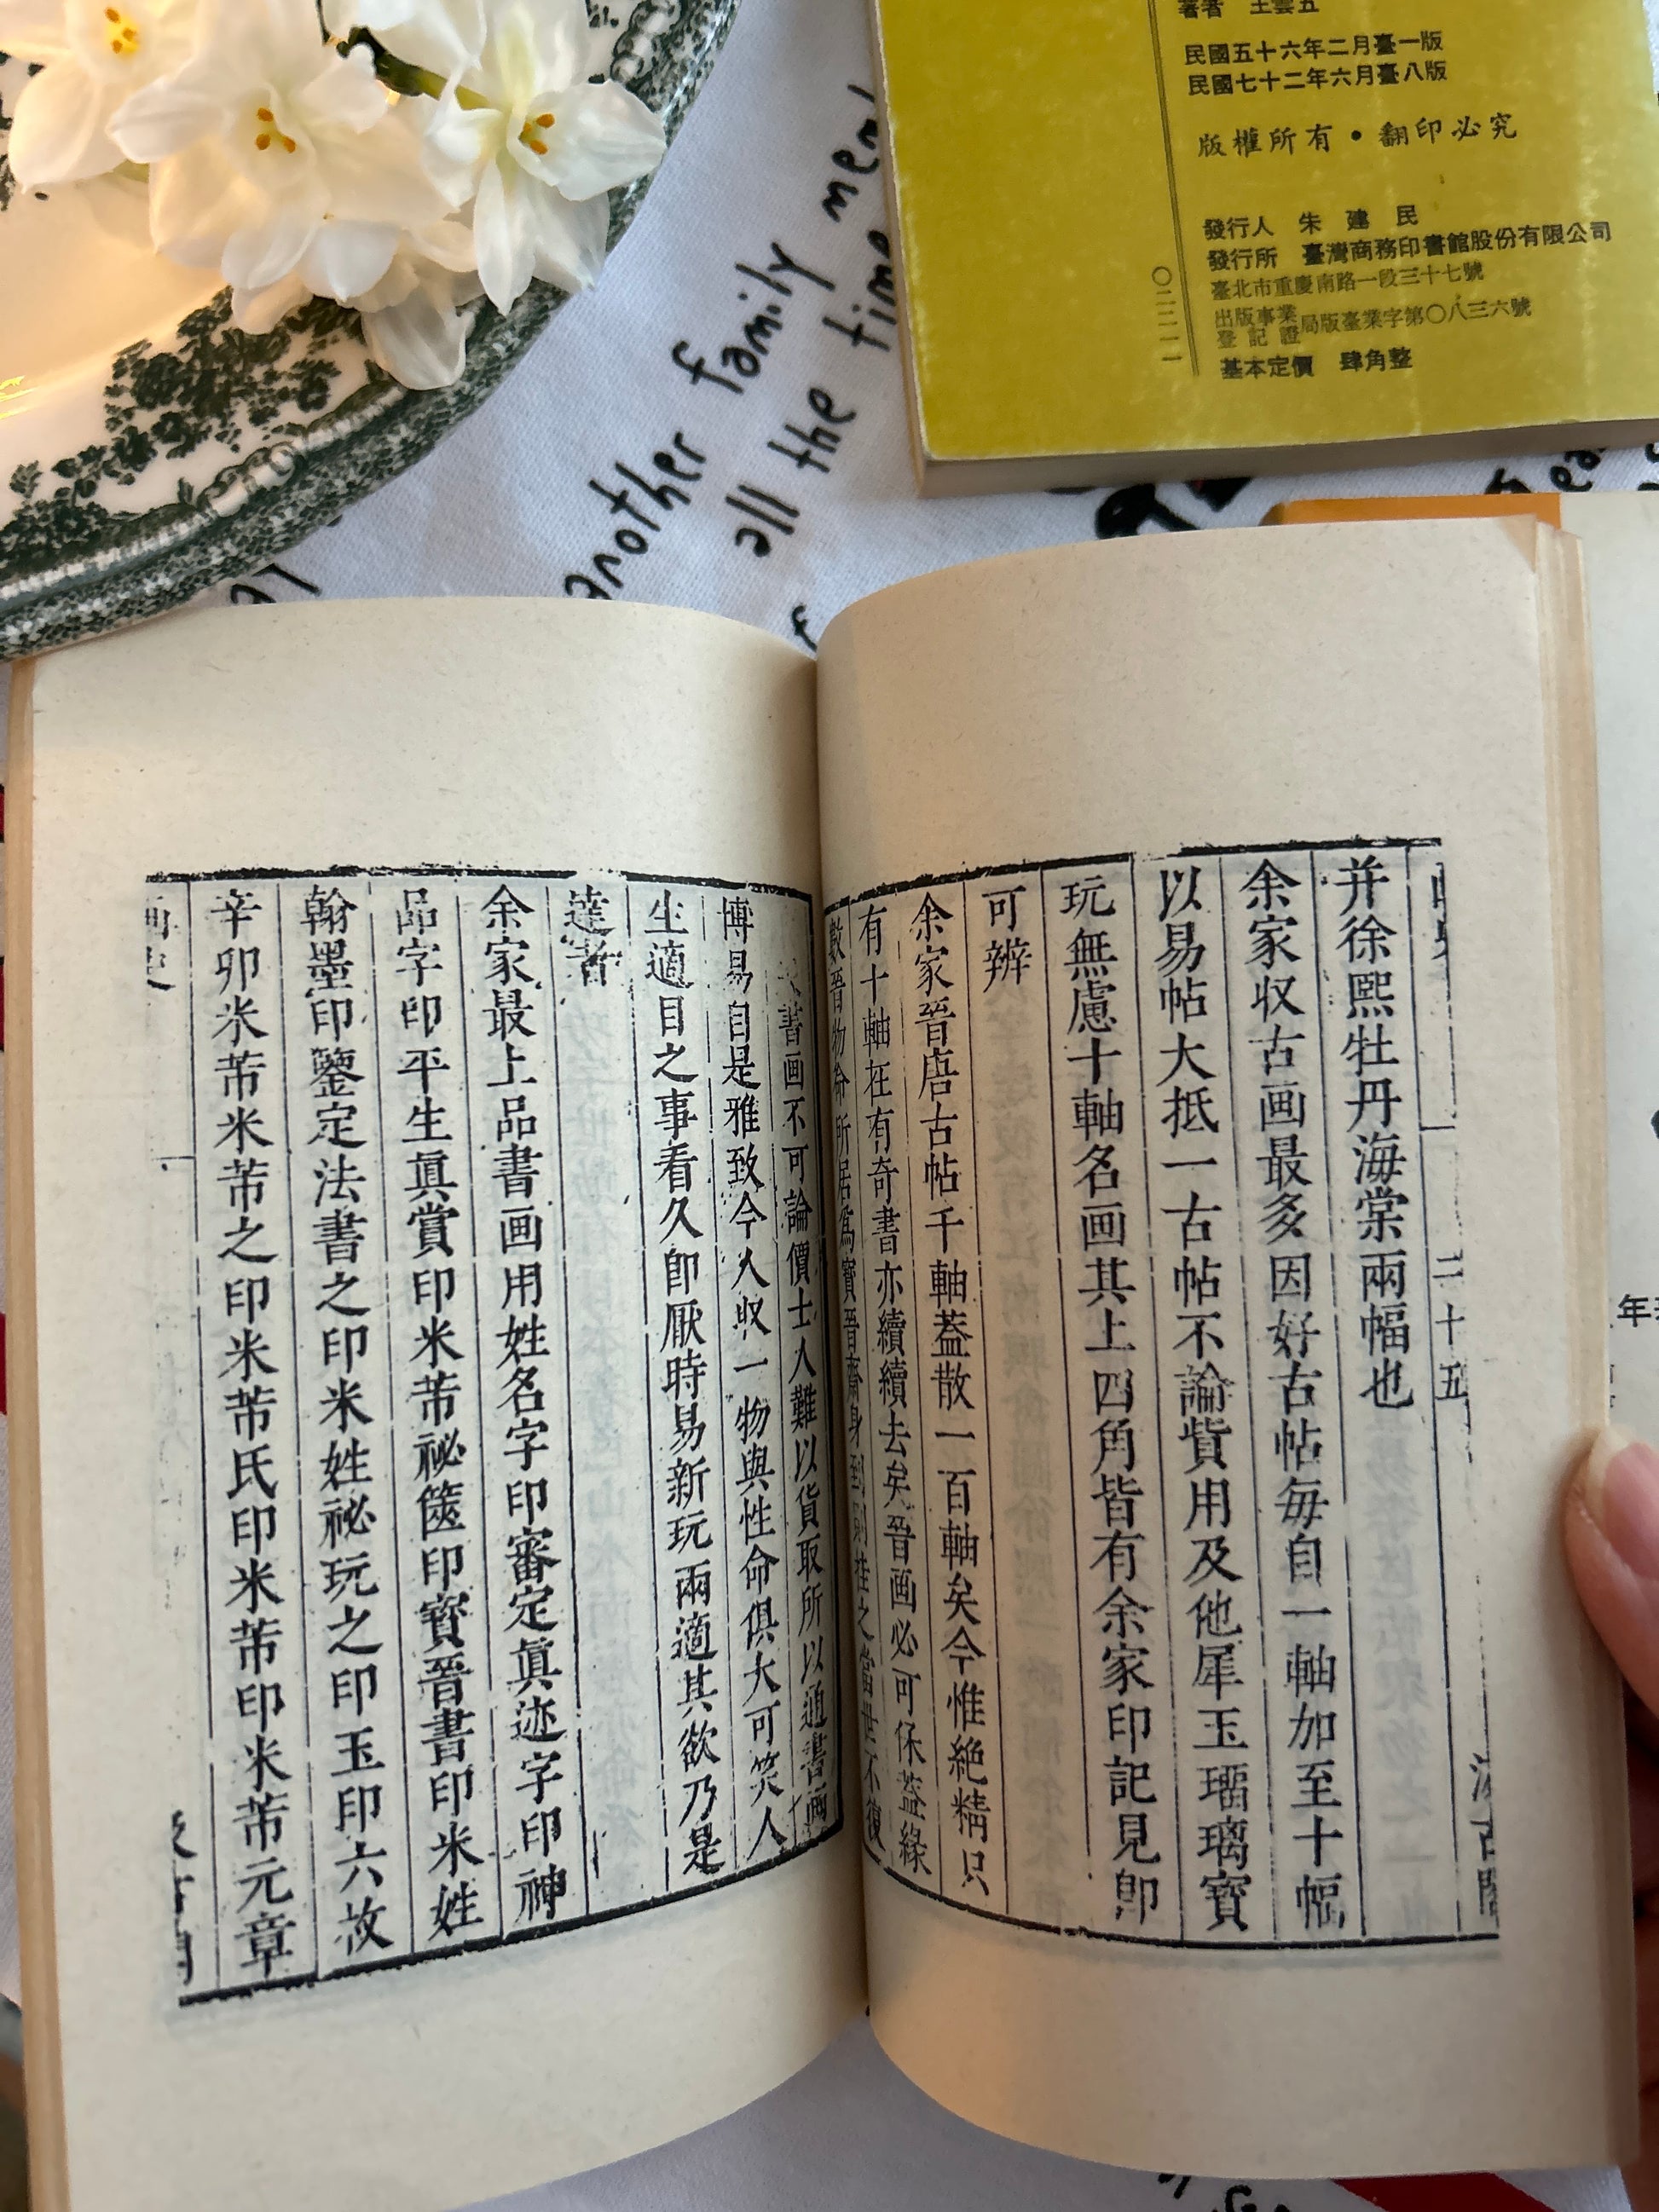 著者 王雲五
民國五十六年二月臺一版
民國七十二年六月臺八版
版權所有•翻印必究
發行人 朱建民
發行所 臺灣商務印書館股份有限公司
臺北市重慶南路一段三十七號
出版事業
登記證
局版臺業字第〇八三六號
基本定價 肆角整
another family mem
all the time
二十五
并徐熙牡丹海棠兩幅也
余家収古画最多因好古帖每自一軸加至十幅
以易帖大抵一古帖不論貲用及他犀玉瑠璃寶
玩無慮十軸名画其上四角皆有余家印記見卽
可辨
余家晉唐古帖千軸蓋散一百軸矣今惟絶精只
有十軸在有奇書亦續續去矣晉画必可保蓋緣
數晉物命所居爲寶晉齋身到則挂之當世不復
書画不可論價士人難以貨取所以通書画
博易自是雅致今人収一物與性命俱大可笑人
生適目之事看久卽厭時易新玩兩適其欲乃是
達者
余家最上品書画用姓名字印審定眞迹字印神
品字印平生眞賞印米芾祕篋印寳晉書印米姓
翰墨印鑒定法書之印米姓祕玩之印玉印六故
辛卯米芾米芾之印米芾氏印米芾印米芾元章
画史
年